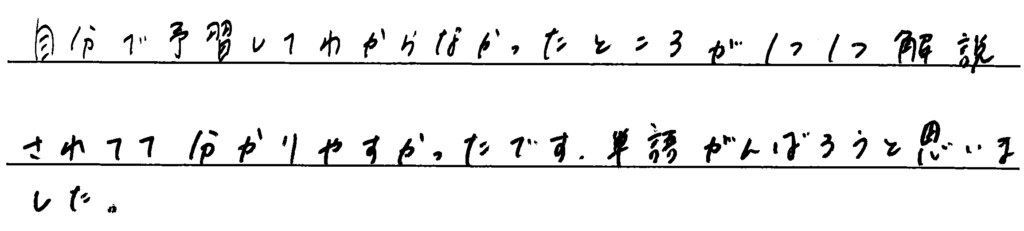 自分で予習してわからなかったところが1つ1つ解説
されてて分かりやすかったです.単語がんばろうと思いま
した。